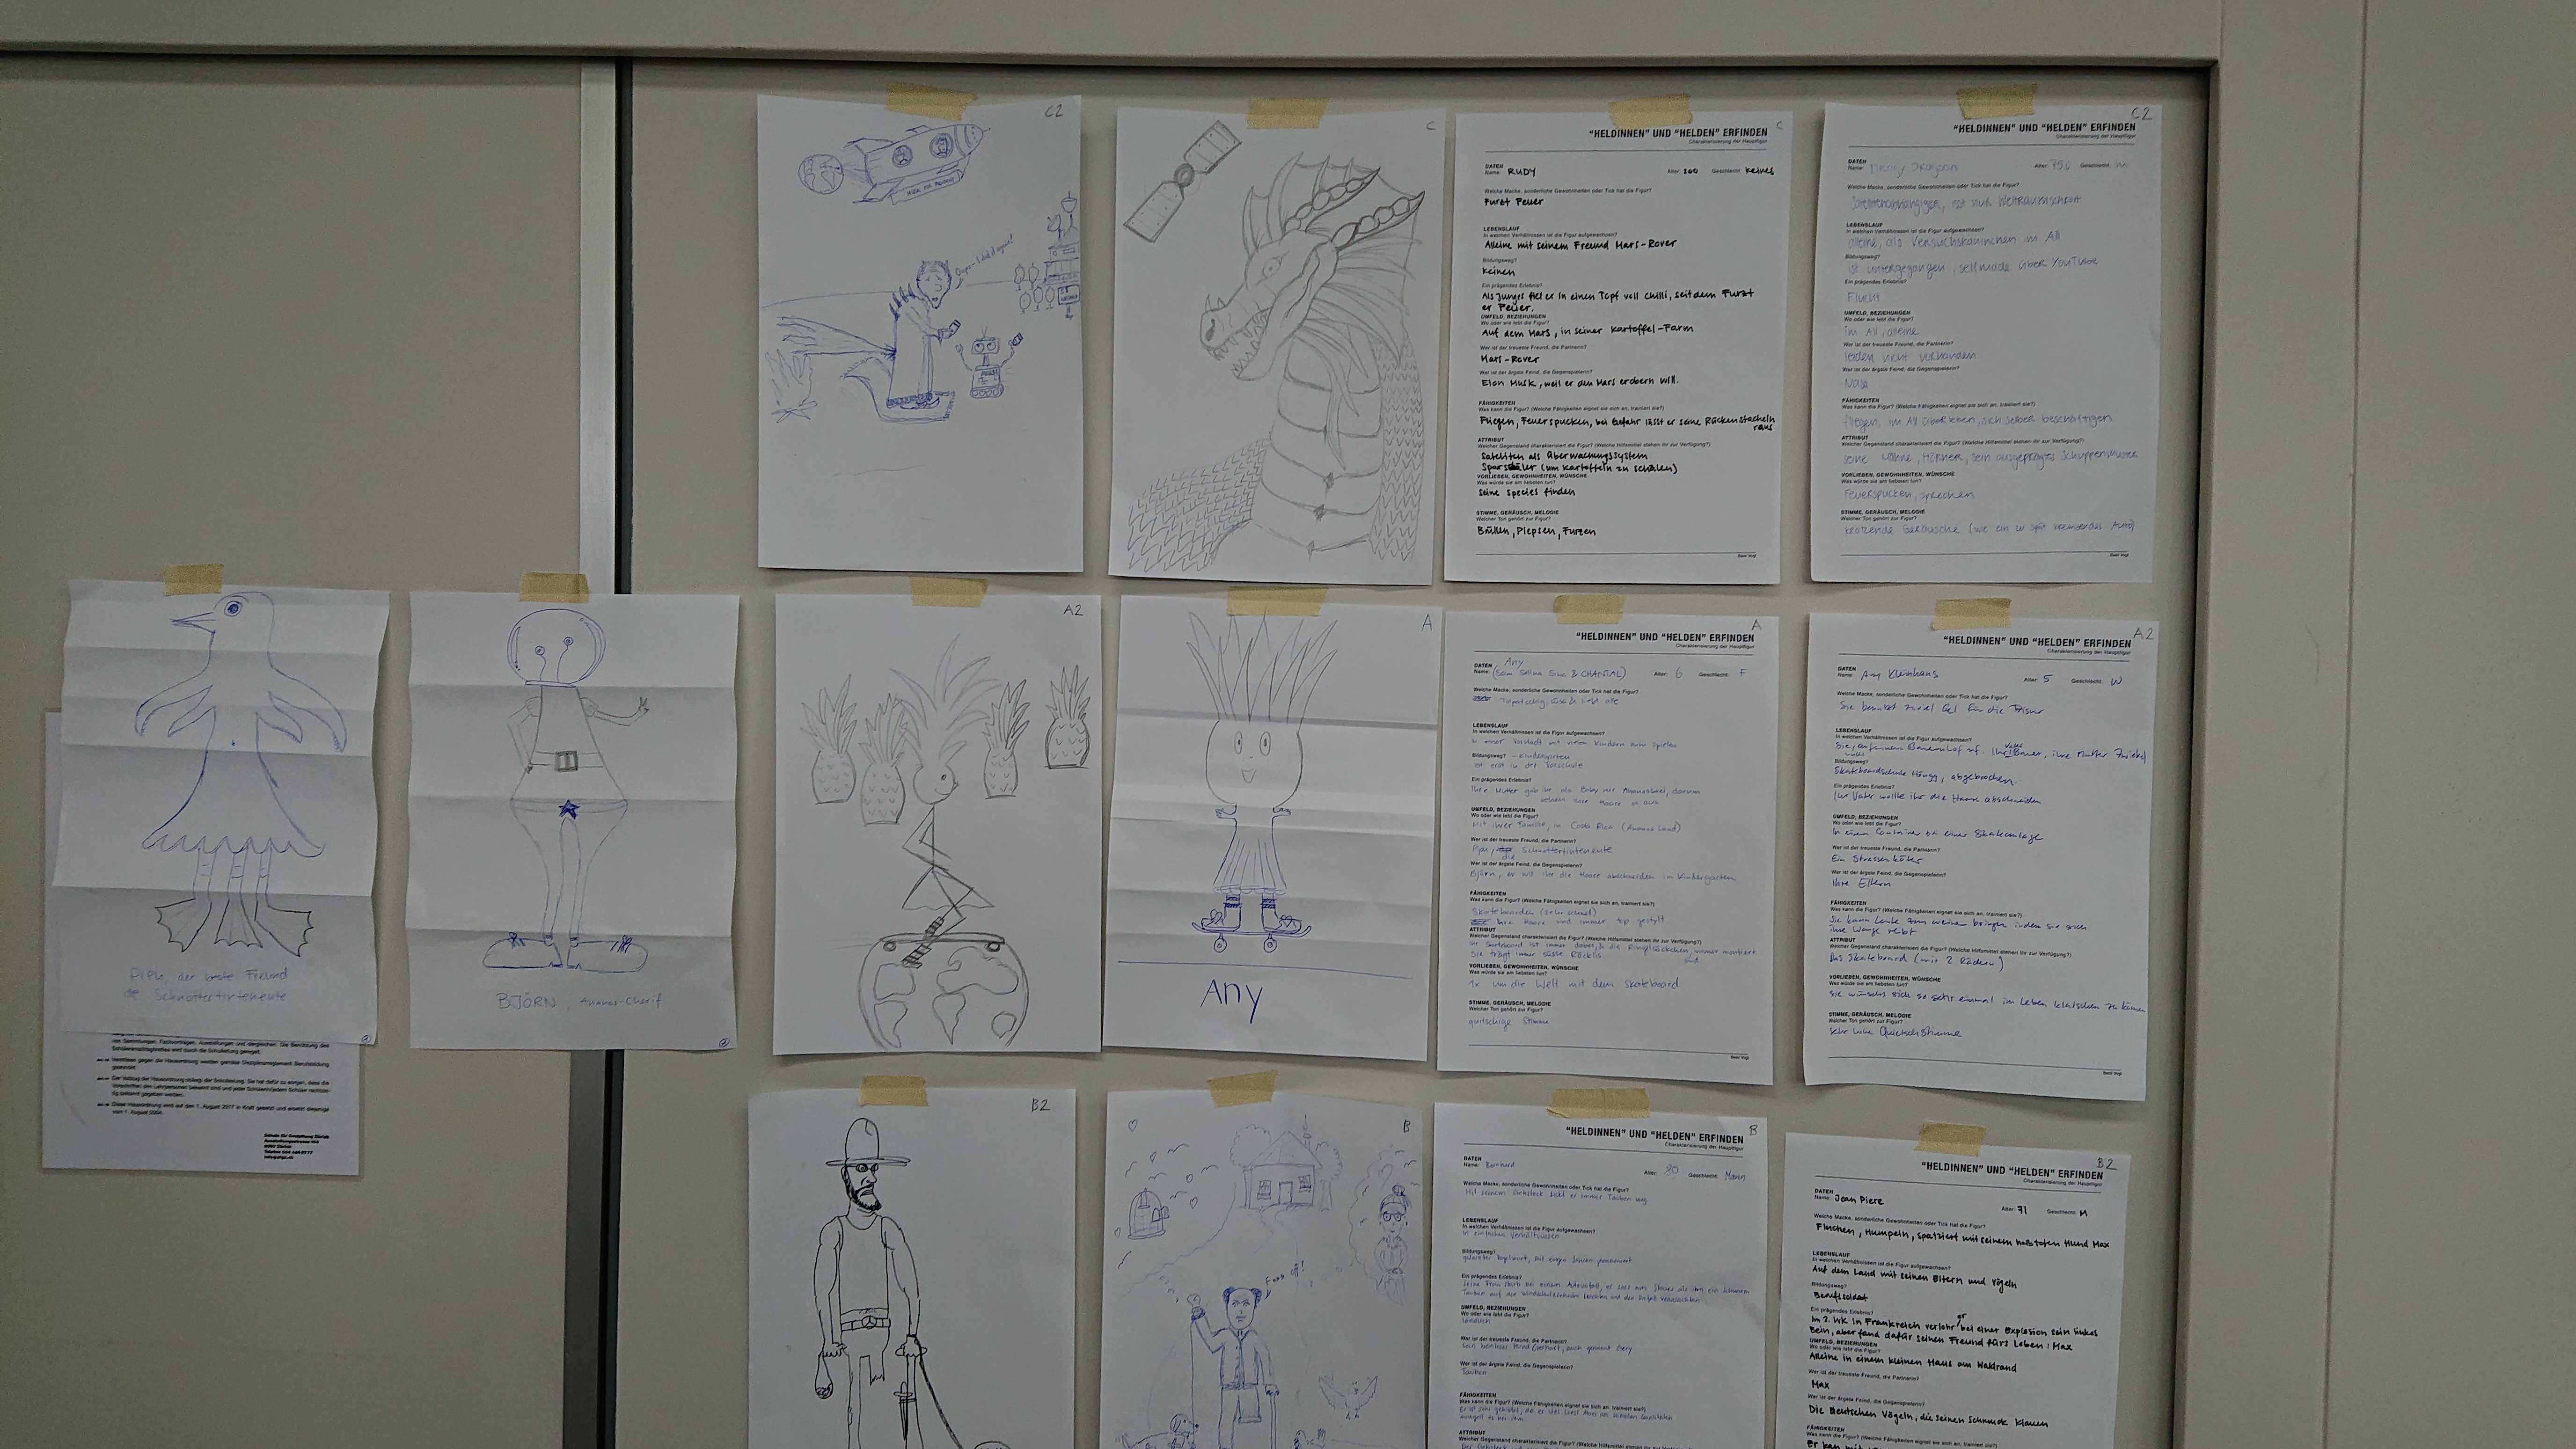 C2
Oops-I did it again!
C
"HELDINNEN" UND "HELDEN" ERFINDEN C
Charakterisierung der Hauptfigur
DATEN
Name: RUDY Alter: 200 Geschlecht: Keines
Welche Macke, sonderliche Gewohnheiten oder Tick hat die Figur?
Furzt Feuer
LEBENSLAUF
In welchen Verhältnissen ist die Figur aufgewachsen?
Alleine mit seinem Freund Mars-Rover
Bildungsweg?
Keinen
Ein prägendes Erlebnis?
Als Junges fiel er in einen Topf voll Chilli, seit dem Furzt
er Feuer.
UMFELD, BEZIEHUNGEN
Wo oder wie lebt die Figur?
Auf dem Mars, in seiner Kartoffel-Farm
Wer ist der treueste Freund, die Partnerin?
Mars-Rover
Wer ist der ärgste Feind, die Gegenspielerin?
Elon Musk, weil er den Mars erobern will.
FÄHIGKEITEN
Was kann die Figur? (Welche Fähigkeiten eignet sie sich an, trainiert sie?)
Fliegen, Feuerspucken, bei Gefahr lässt er seine Rückenstacheln
raus
ATTRIBUT
Welcher Gegenstand charakterisiert die Figur? (Welche Hilfsmittel stehen ihr zur Verfügung?)
Sateliten als Überwachungssystem
Sparschäler (um Kartoffeln zu schälen)
VORLIEBEN, GEWOHNHEITEN, WÜNSCHE
Was würde sie am liebsten tun?
Seine Species finden
STIMME, GERÄUSCH, MELODIE
Welcher Ton gehört zur Figur?
Brüllen, Piepsen, Furzen
C2
"HELDINNEN" UND "HELDEN" ERFINDEN
Charakterisierung der Hauptfigur
DATEN
Name: Alter: 750 Geschlecht: m
Welche Macke, sonderliche Gewohnheiten oder Tick hat die Figur?
Satellitenabhängiger, isst nur Weltraumschrott
LEBENSLAUF
In welchen Verhältnissen ist die Figur aufgewachsen?
alleine, als Versuchskaninchen im All
Bildungsweg?
ist untergegangen, selfmade über YouTube
Ein prägendes Erlebnis?
Flucht
UMFELD, BEZIEHUNGEN
Wo oder wie lebt die Figur?
im All, alleine
Wer ist der treueste Freund, die Partnerin?
leider nicht vorhanden
Wer ist der ärgste Feind, die Gegenspielerin?
FÄHIGKEITEN
Was kann die Figur? (Welche Fähigkeiten eignet sie sich an, trainiert sie?)
fliegen, im All überleben, sich selber beschäftigen
ATTRIBUT
Welcher Gegenstand charakterisiert die Figur? (Welche Hilfsmittel stehen ihr zur Verfügung?)
seine Mähne, Hörner, sein ausgeprägtes Schuppenmuster
VORLIEBEN, GEWOHNHEITEN, WÜNSCHE
Was würde sie am liebsten tun?
Feuerspucken, sprechen
STIMME, GERÄUSCH, MELODIE
Welcher Ton gehört zur Figur?
kratzende Geräusche (wie ein zu spät bremsendes Auto)
Pipu, der beste Freund
de Schnottertintenente
BJÖRN, Ananas-Cherif
A2
A
Any
A
"HELDINNEN" UND "HELDEN" ERFINDEN
Charakterisierung der Hauptfigur
DATEN Any
Name: & CHANTAL) Alter: 6 Geschlecht: F
Welche Macke, sonderliche Gewohnheiten oder Tick hat die Figur?
LEBENSLAUF
In welchen Verhältnissen ist die Figur aufgewachsen?
In einer Vorstadt mit vielen Kindern zum Spielen
Bildungsweg? - Kindergarten
ist erst in der Vorschule
Ein prägendes Erlebnis?
Ihre Mutter gab ihr als Baby nur Ananasbrei, darum
sehen ihre Haare so aus
UMFELD, BEZIEHUNGEN
Wo oder wie lebt die Figur?
Mit ihrer Familie, in Costa Rica (Ananas Land)
Wer ist der treueste Freund, die Partnerin?
Pipu, die Schnottertintenente
Wer ist der ärgste Feind, die Gegenspielerin?
Björn, er will ihr die Haare abschneiden im Kindergarten
FÄHIGKEITEN
Was kann die Figur? (Welche Fähigkeiten eignet sie sich an, trainiert sie?)
Skateboarden (sehr schnell)
ihre Haare sind immer top gestylt
ATTRIBUT
Welcher Gegenstand charakterisiert die Figur? (Welche Hilfsmittel stehen ihr zur Verfügung?)
Ihr Skateboard ist immer dabei, & die Ringelsöckchen, immer montiert
Sie trägt immer süsse Röcklis
VORLIEBEN, GEWOHNHEITEN, WÜNSCHE
Was würde sie am liebsten tun?
1x um die Welt mit dem Skateboard
STIMME, GERÄUSCH, MELODIE
Welcher Ton gehört zur Figur?
quitschige Stimme
A2
"HELDINNEN" UND "HELDEN" ERFINDEN
Charakterisierung der Hauptfigur
DATEN
Name: Any Kleinhans Alter: 5 Geschlecht: W
Welche Macke, sonderliche Gewohnheiten oder Tick hat die Figur?
Sie benutzt zuviel Gel für die Frisur
LEBENSLAUF
In welchen Verhältnissen ist die Figur aufgewachsen?
Bildungsweg?
Skateboardschule Höngg, abgebrochen.
Ein prägendes Erlebnis?
Ihr Vater wollte ihr die Haare abschneiden
UMFELD, BEZIEHUNGEN
Wo oder wie lebt die Figur?
In einem Container bei einer Skateanlage
Wer ist der treueste Freund, die Partnerin?
Ein Strassenköter
Wer ist der ärgste Feind, die Gegenspielerin?
Ihre Eltern
FÄHIGKEITEN
Was kann die Figur? (Welche Fähigkeiten eignet sie sich an, trainiert sie?)
Sie kann Leute zum weinen bringen indem sie sich
ihre Wange reibt
ATTRIBUT
Welcher Gegenstand charakterisiert die Figur? (Welche Hilfsmittel stehen ihr zur Verfügung?)
Das Skateboard (mit 2 Rädern)
VORLIEBEN, GEWOHNHEITEN, WÜNSCHE
Was würde sie am liebsten tun?
Sie wünscht sich so sehr einmal im Leben klatschen zu können
STIMME, GERÄUSCH, MELODIE
Welcher Ton gehört zur Figur?
Sehr hohe Quietschstimme
Verstösse gegen die Hausordnung werden gemäss Disziplinarreglement Berufsbildung
geahndet.
Diese Hausordnung wird auf den 1. August 2017 in Kraft gesetzt und ersetzt diejenige
vom 1. August 2004.
Schule für Gestaltung Zürich
B2
B
B
"HELDINNEN" UND "HELDEN" ERFINDEN
Charakterisierung der Hauptfigur
DATEN
Name: Bernhard Alter: 80 Geschlecht: Mann
Welche Macke, sonderliche Gewohnheiten oder Tick hat die Figur?
Mit seinem Gehstock kickt er immer Tauben weg.
LEBENSLAUF
In welchen Verhältnissen ist die Figur aufgewachsen?
In einfachen Verhältnissen
Bildungsweg?
Ein prägendes Erlebnis?
UMFELD, BEZIEHUNGEN
Wo oder wie lebt die Figur?
Ländlich
Wer ist der treueste Freund, die Partnerin?
Wer ist der ärgste Feind, die Gegenspielerin?
Tauben
FÄHIGKEITEN
Was kann die Figur? (Welche Fähigkeiten eignet sie sich an, trainiert sie?)
ATTRIBUT
Welcher Gegenstand charakterisiert die Figur? (Welche Hilfsmittel stehen ihr zur Verfügung?)
B2
"HELDINNEN" UND "HELDEN" ERFINDEN
Charakterisierung der Hauptfigur
DATEN
Name: Jean Piere Alter: 71 Geschlecht: M
Welche Macke, sonderliche Gewohnheiten oder Tick hat die Figur?
Fluchen, Humpeln, spatziert mit seinem halbtoten Hund Max
LEBENSLAUF
In welchen Verhältnissen ist die Figur aufgewachsen?
Auf dem Land mit seinen Eltern und Vögeln
Bildungsweg?
Berufssoldat
Ein prägendes Erlebnis?
Im 2. WK in Frankreich verlohr er bei einer Explosion sein linkes
Bein, aber fand dafür seinen Freund fürs Leben: Max
UMFELD, BEZIEHUNGEN
Wo oder wie lebt die Figur?
Alleine in einem kleinen Haus am Waldrand
Wer ist der treueste Freund, die Partnerin?
Max
Wer ist der ärgste Feind, die Gegenspielerin?
Die deutschen Vögeln, die seinen Schmuck klauen
FÄHIGKEITEN